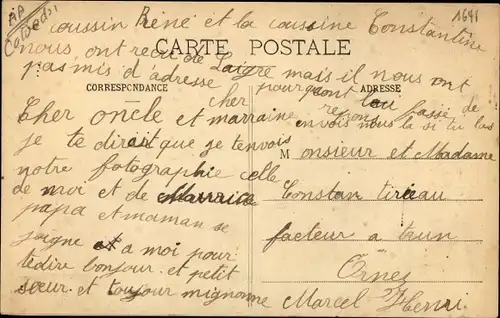 AP
1641
cousin Réné et la cousine Constantine
nous ont reçu de Laigre mais il nous ont
pas mis d adresse pourquoi
CARTE POSTALE
CORRESPONDANCE
ADRESSE
Cher oncle et marraine
je te dirait que je tenvois
notre fotographie celle
de moi et de Maurice
papa et maman se
joigne a moi pour
te dire bonjour et petit
sœur et toujour mignonne
passé de
envois nous la si tu las
Monsieur et Madame
Constan
facteur a
Ornes
Marcel Henri